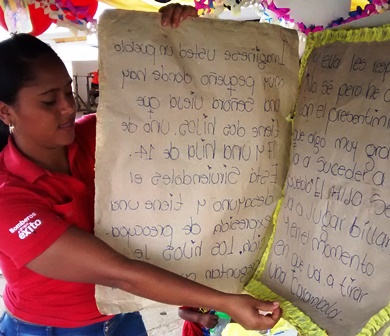 Imaginese usted un pueblo
muy pequeño donde hay
una Señora vieja que
tiene dos hijos. uno de
17 y una hija de 14.
Está Sirviendoles el
desayuno y tiene una
expresión de preocupa
ción. Los hijos le
preguntan
y ella les
No sé pero he
on el
que algo muy
a a suceder a
pueblo. El hijo se
a Jugar billar
y en el momento
en que va a tirar
una Carambola
Bomberos
éxito